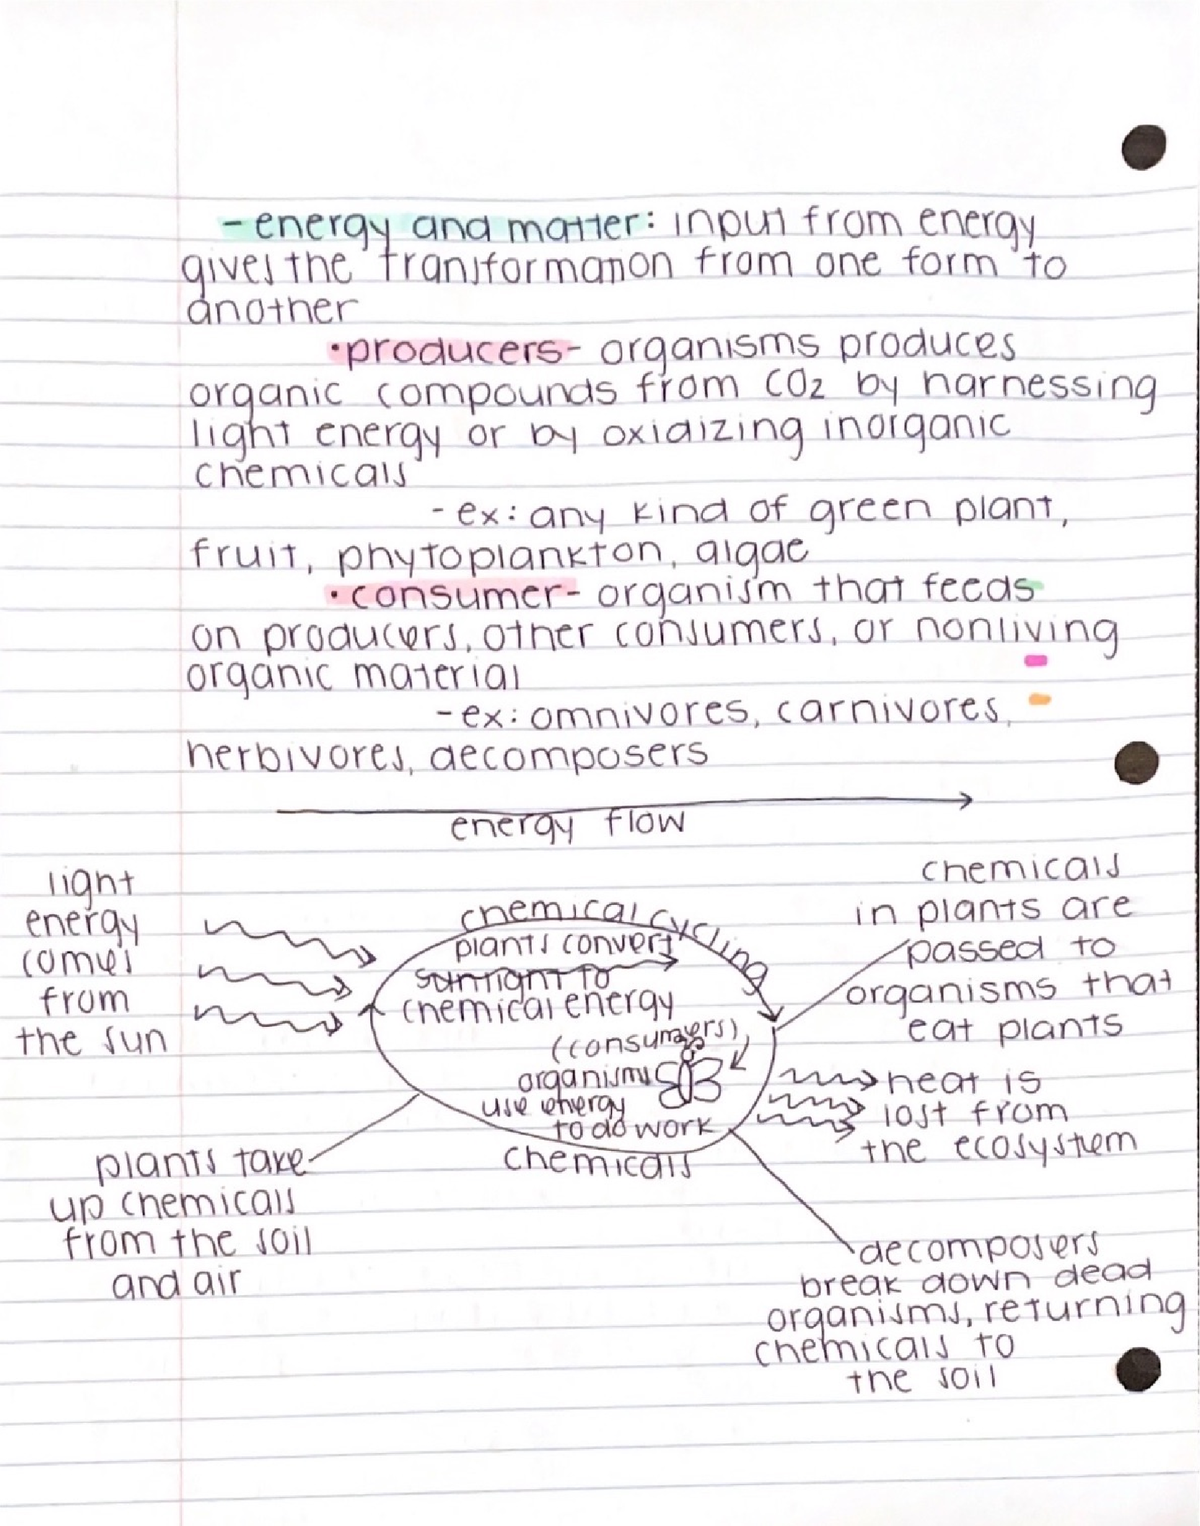 - energy and matter: input from energy
gives the transformation from one form to
another
• producers- organisms produces
organic compounds from CO2 by harnessing
light energy or by oxidizing inorganic
chemicals
- ex: any kind of green plant,
fruit, phytoplankton, algae
• consumer- organism that feeds
on producers, other consumers, or nonliving
organic material
- ex: omnivores, carnivores,
herbivores, decomposers
energy flow
light
energy
comes
from
the sun
chemical cycling
plants convert
sunlight to
chemical energy
(consumers)
organisms
use energy
to do work
chemicals
chemicals
in plants are
passed to
organisms that
eat plants
heat is
lost from
the ecosystem
plants take
up chemicals
from the soil
and air
decomposers
break down dead
organisms, returning
chemicals to
the soil